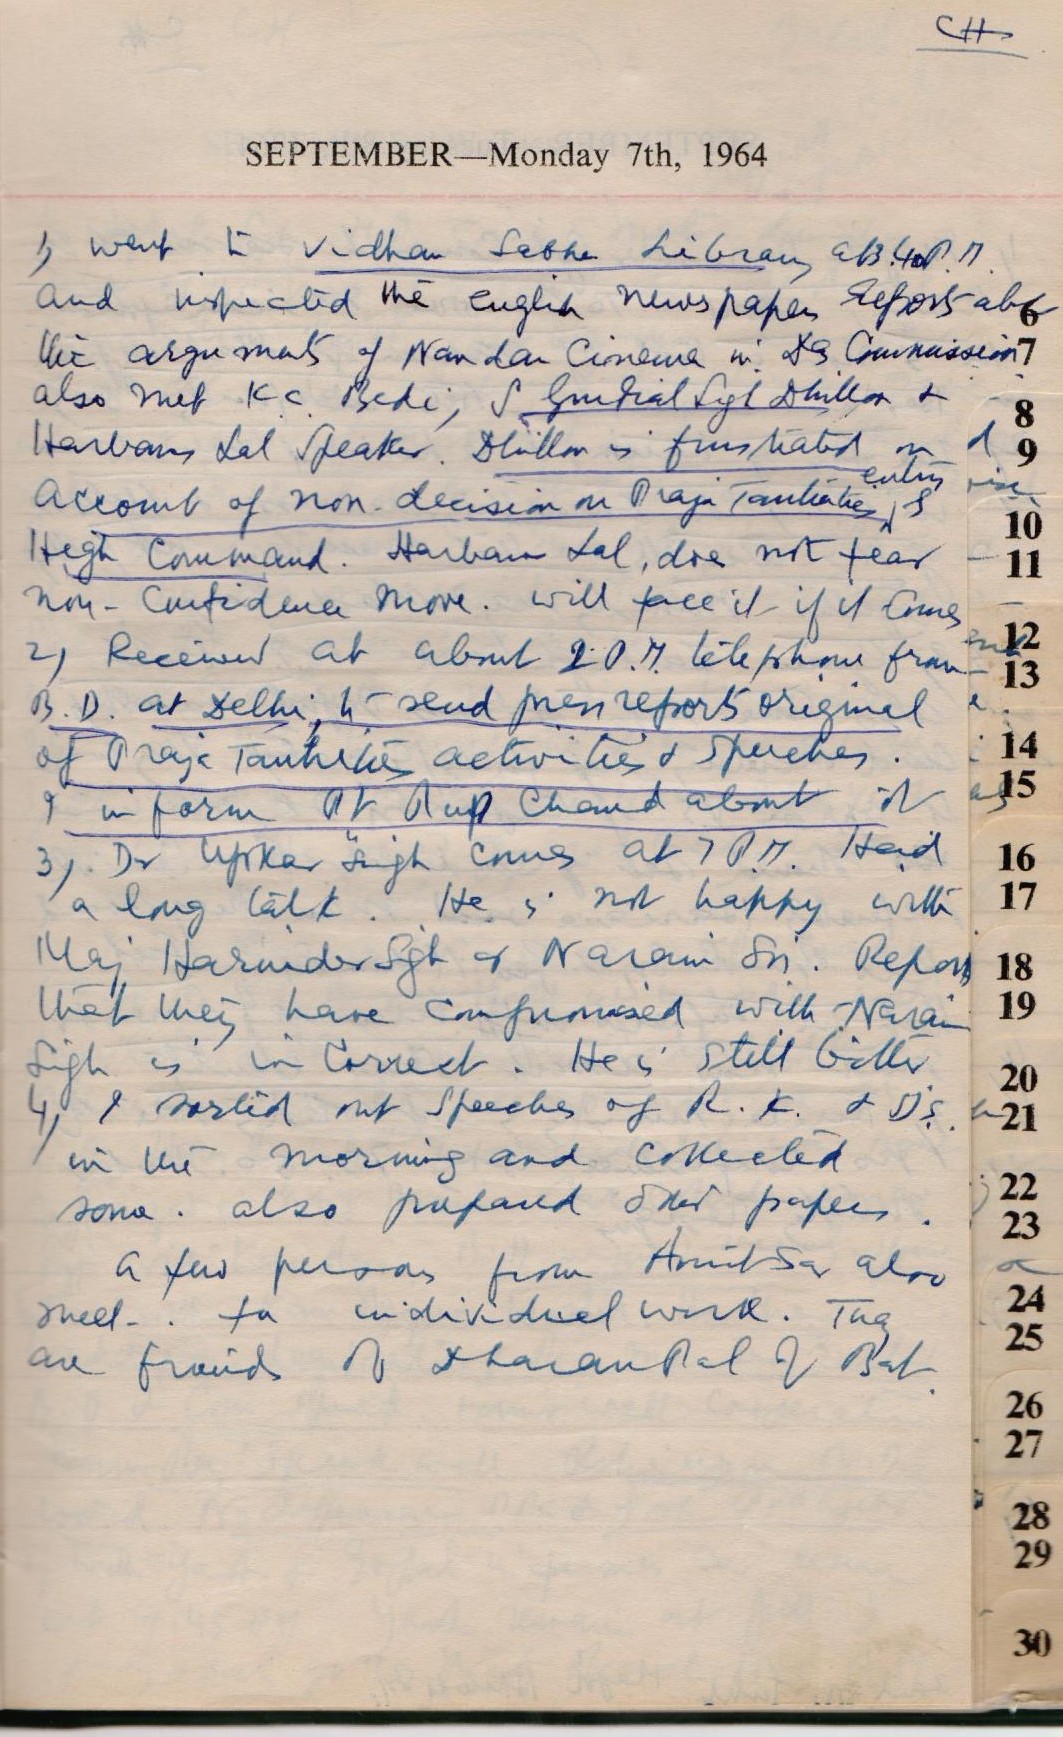 CH
SEPTEMBER—Monday 7th, 1964
1, went to Vidhan Sabha Library at 3.40 P.M.
and inspected the english newspapers reports abt
the arguments of Nandan Cinema in Das Commission
also met K.C. Bedi, S Gurdial Sigh Dhillon &
Harbans Lal Speaker. Dhillon is frustrated on
account of non-decision on Praja Tantritis entry by
High Command. Harbans Lal, does not fear
non-Confidence move. will face it if it comes
2, Received at about 2 P.M. telephone from
B.D. at Delhi, to send press reports original
of Praja Tantrites activities & speeches.
I inform Pt Rup Chand about it
3, Dr Upkar Singh comes at 7 P.M. Had
a long talk. He is not happy with
Maj Harinder Sigh or Narain Sri. Reports
that they have compromised with Narain
Sigh is in correct. He is still bitter
4, I sorted out speeches of R.K. & D.S.
in the morning and collected
some. also prepared other papers.
A few persons from Amritsar also
meet. for individual work. They
are friends of Dharam Pal of Bat.
6
7
8
9
10
11
12
13
14
15
16
17
18
19
20
21
22
23
24
25
26
27
28
29
30